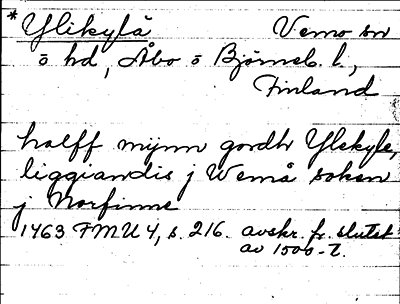 * Ylikylä Vemo sn
ö hd, Åbo ö Björneb. l.,
Finland
halff mijnn gordh Ylekyle,
liggiandis j Wemå soken
j Norfinne
1463 FMU 4, s. 216. avskr. fr. slutet
av 1500-t.